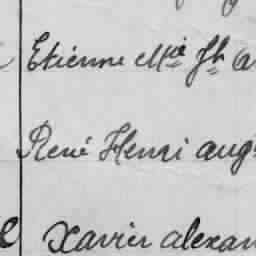 Etienne Mie Jh a
René Henri aug
Xavier alexan